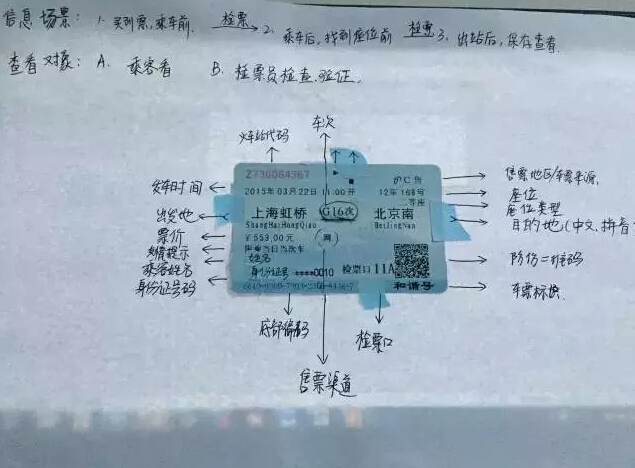 信息场景: 1. 买到票,乘车前. 检票 2. 乘车后,找到座位前 检票 3. 出站后,保存查看.
查看对象: A. 乘客看 B. 检票员检查.验证.
火车站代码
车次
发车时间
出发地
票价
友情提示
乘客姓名
身份证号码
Z73G064367
沪C售
2015年03月22日11:00开 12车16B号
二等座
上海虹桥 G16次 北京南
ShangHaiHongQiao BeiJingNan
￥553.00元 网
限乘当日当次车
姓名
身份证号 ****0010 检票口11A
和谐号
售票地区/车票来源
座位
座位类型
目的地(中文,拼音
防伪二维码
车票标识
底部编码
检票口
售票渠道